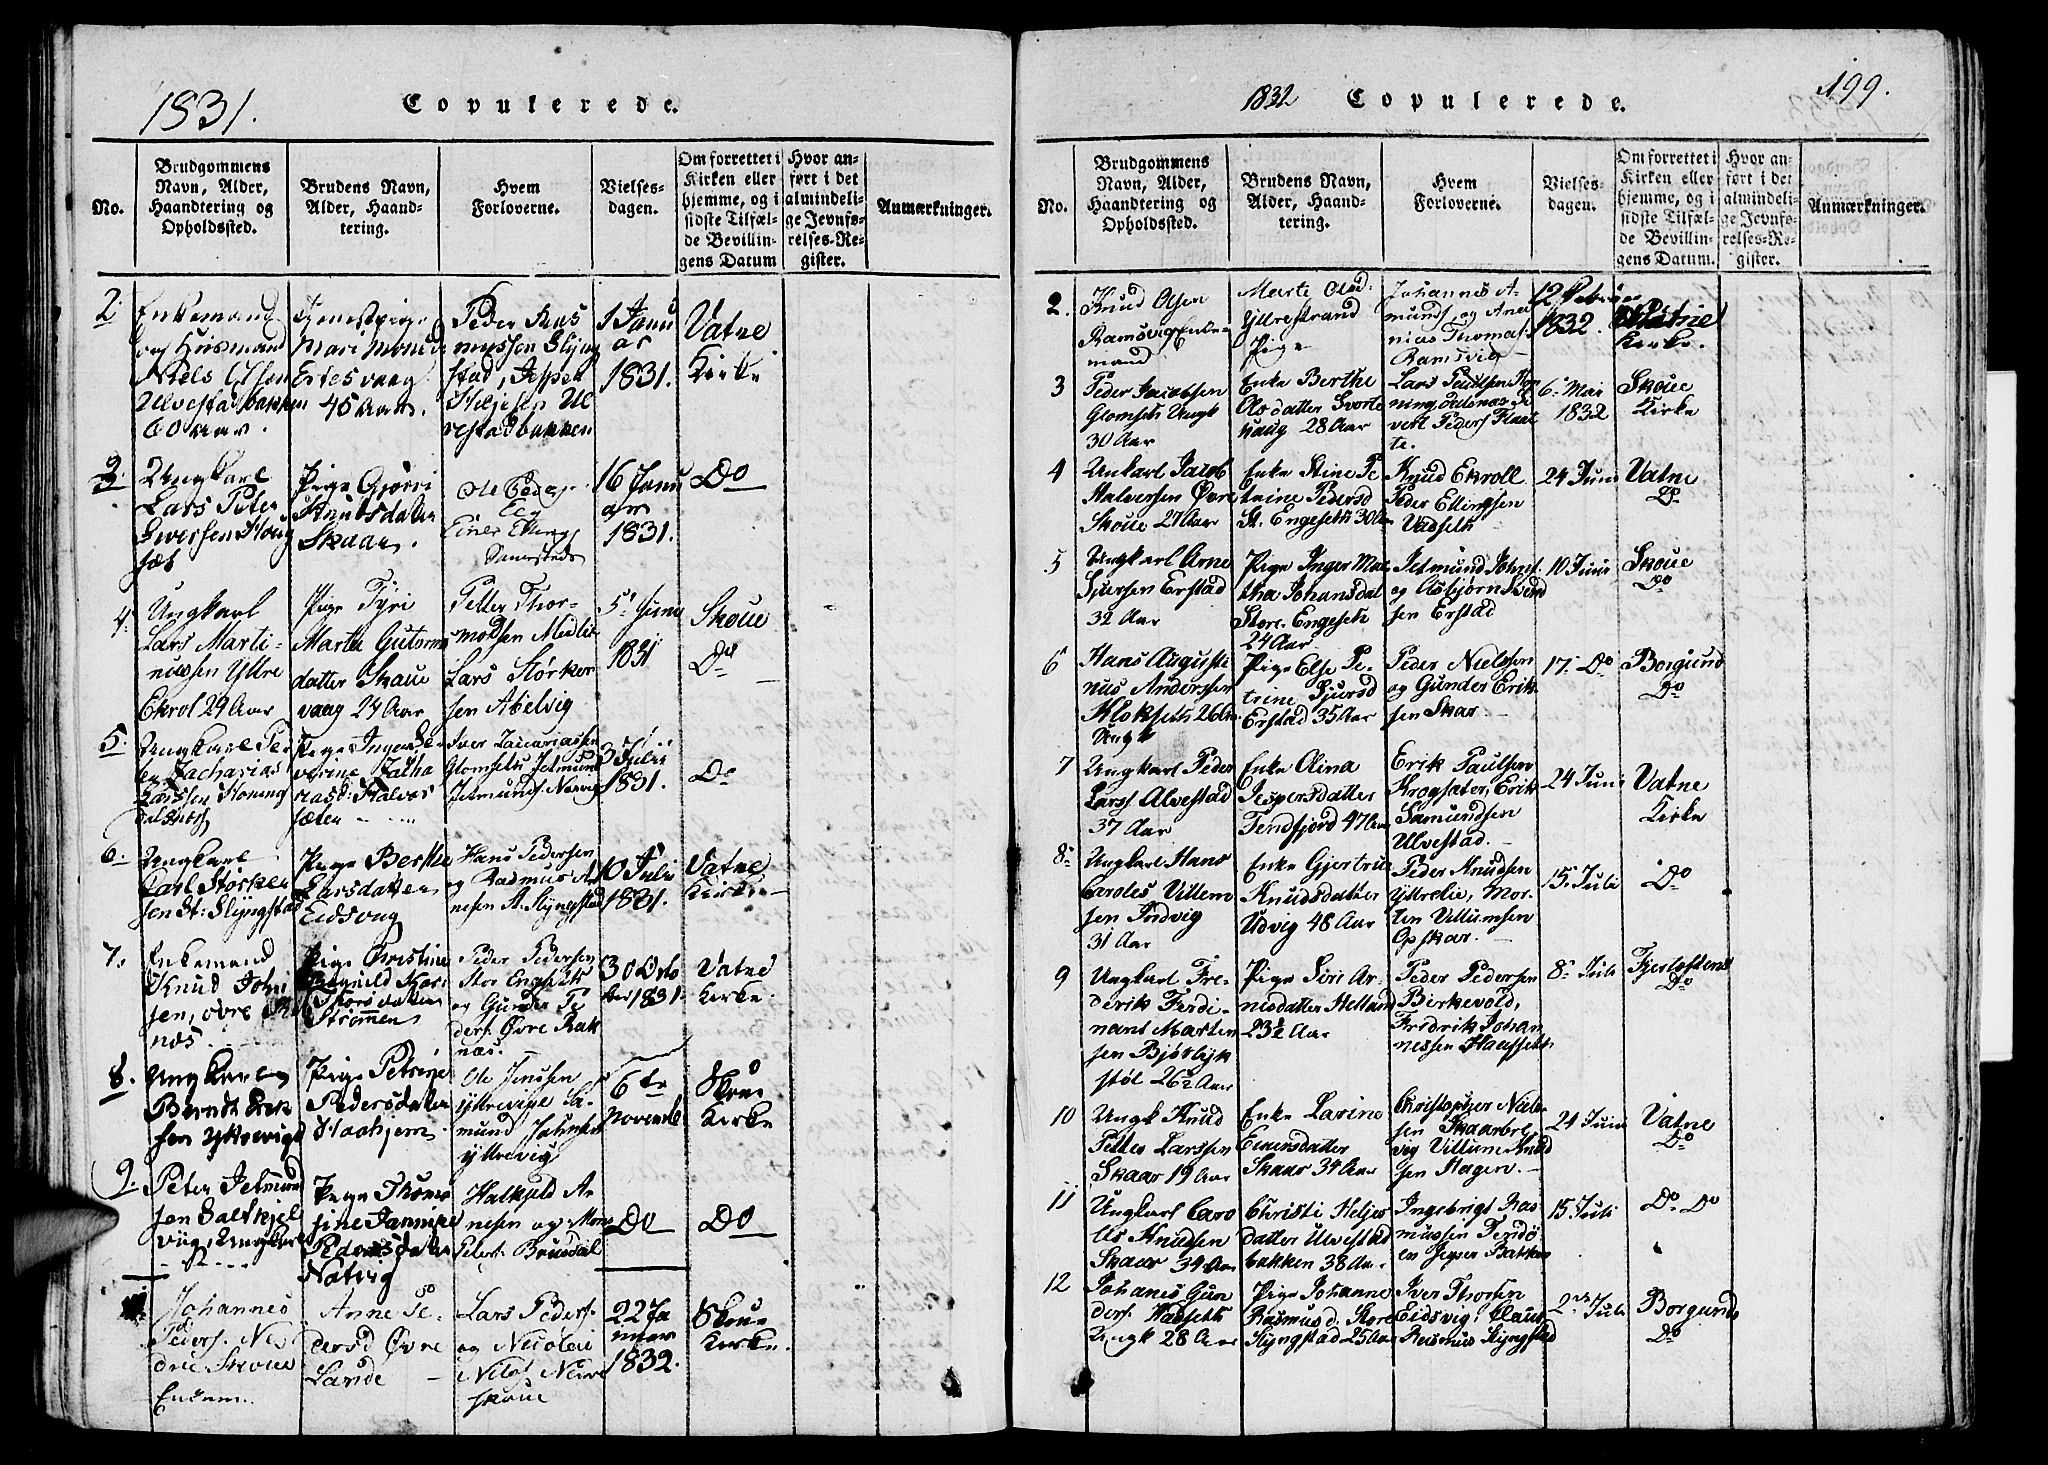 1831.
Copulerede.
No.
Brudgommens
Navn, Alder,
Haandtering og
Opholdssted.
Brudens Navn,
Alder, Haand-
tering.
Hvem
Forloverne.
Vielses-
dagen.
Om forrettet i
Kirken eller
hjemme, og i
sidste Tilfæl-
de Bevillin-
gens Datum
Hvor an-
ført i det
almindeli-
ge Jevnfø-
relses-Re-
gister.
Anmærkninger.
2.
Enkemand
og Huusmand
Niels Olsen
Ulvestadbakken
60 Aar.
Tjenestpige
Mari
Eidsvaag
45 Aar.
Peder Ras
mussen Slyng
stad, Jesper
Ul
vestadbakken
1 Janu
ar
1831.
Vatne
Kirke
3.
Ungkarl
Lars Peter
Iversen Houg
sæt
Pige Gjørri
Knudsdatter
Skaar.
Ole Peders
Einer Elling
16 Janu
ar
1831.
Do
4.
Ungkarl
Lars Marti-
nussen Yttre
Ekrol 29 Aar
Pige Syri
Marta Gutorms
datter Skaue
vaag 24 Aar
Petter Thor-
modsen
Lars Størker
sen Abelvig
5 Juni
1831
Skoue
Do
5.
Ungkarl Pe
ter Zacharias
Larssen
Pige
Iver Zacariassen
Glomsets Jetmund
Jetmunds.
3 Julii
1831.
Do
6.
Ungkarl
Carl Størker
sen St: Slyngstad
Pige Berthe
Larsdatter
Eidsvug
Hans Pedersen
og Rasmus A
nesen St. Slyngstad
10 Juli
1831.
Vatne
Kirke
7.
Enkemand
Knud John
sen, øvre
næs
Pige Christine
Ragnild
Strømmen
Peder Pedersen
Stor Engeseth
og Gunder Pe
ders. Øvre Rak
næs.
30 Octo
ber 1831.
Vatne
Kirke.
8.
Ungkarl
Berndt Erik
sen Yttrevigs
Pige Petrine
Pedersdatter
Haahjem.
Ole Jensen
Yttrevige Sa-
mund Johnsen
Yttrevig
6te
Novemb
Skoue
Kirke
9.
Peter Jetmund
sen Saltkjel
viig, Ungkarl
Pige Thoma
sine
Pedersdatter
Natvig
Halkjeld Ar
nesen og Mons
Peters. Brusdal
Do
Do
Johannes
Peders. Ne
dre Skoue
Enkem.
Anne Pe-
dersd Øvre
Lande
Lars Peders.
og Nicolai
Nils. Nedre
skoue
22 Ja
nuar
1832.
Skoue
Kirke.
1832
Copulerede.
199.
No.
Brudgommens
Navn, Alder,
Haandtering og
Opholdssted.
Brudens Navn,
Alder, Haand-
tering.
Hvem
Forloverne.
Vielses-
dagen.
Om forrettet i
Kirken eller
hjemme, og i
sidste Tilfæl-
de Bevillin-
gens Datum.
Hvor an-
ført i det
almindeli-
ge Jevnfø-
relses-Re-
gister.
Anmærkninger.
2.
Knud Olsen
Ramsvig Enke-
mand
Marte Olsd:
Yttrestrand
Pige
Johannes A-
munds. og Ana
nias Thomas.
Ramsvig
12 Februar
1832.
Vatne
Kirke.
3
Peder Jacobsen
Glomsets Ungk
30 Aar
Enke Berthe
Olsdatter Svorte
haug 28 Aar
Lars Paulsen
Si
vert Peders Flaat
te.
6 Mai
1832
Skoue
Kirke
4
Unkarl Jacob
Halversen Øvre
Skoue 27 Aar
Enke Stine Pe
trine Pedersd
St. Engeseth 30 Aar
Knud Ekroll
Peder Ellingsen
Vadseth
24 Juni
Vatne
Do
5
Ungkarl Arne
Sjursen Erstad
32 Aar
Pige Inger Mar
tha Johansdat
Store Engeseth
24 Aar
Jetmund Johns.
og Asbjørn Knud
sen Erstad
10 Juni
Skoue
Do
6
Hans Auguste
nus Anderssen
Kloksets 26 Aar
Ungk
Pige Else Pe-
trine Sjursd
Erstad 35 Aar
Peder Nielssen
og Gunder Erik
sen Skar.
17 Do
Borgund
Do
7
Ungkarl Peder
Lars. Alvestad
37 Aar
Enke Olina
Jespersdatter
Tendfjord 47 Aar
Erik Paulsen
Krogsæter, Erik
Samundsen
Ulvestad.
24 Juni
Vatne
Kirke
8
Ungkarl Hans
Caroles Villem
sen Indvig
31 Aar
Enke Gjertrue
Knudsdatter
Udvig 48 Aar
Peder Knudsen
Yttrelie, Mor-
ten Villumsen
Opskar.
15 Juli
Do
9
Ungkarl Fre-
derik Ferdi-
nant Marten
sen Bjørlyk
støl 26½ Aar
Pige Siri Ar-
nesdatter Helland
23½ Aar
Peder Pedersen
Birkevold,
Fridrik Johan
nessen Haasseth
8 Juli
Fjertoftens
Do
10
Ungk Knud
Petter Larssen
Skaar 19 Aar
Enke Larine
Einersdatter
Skaar 34 Aar
Christopher Niel-
sen Skaarbre
vig Villum Knud
sen Hagen.
24 Juni
Vatne
Do
11
Ungkarl Caro
lus Knudsen
Skaar 34 Aar
Christi Heljes
datter Ulvestad
bakken 38 Aar
Ingebrigt Ras
mussen Tendø
en Jesper Bakken
15 Juli
Do Do
12
Johanes Gun
ders. Vadseth
Ungk 28 Aar
Pige Johanne
Rasmusd. Store
Slyngstad 25 Aar
Iver Thorsen
Eidsvig, Claus
Rasmus Slyngstad
2 Juli
Borgunds
Do